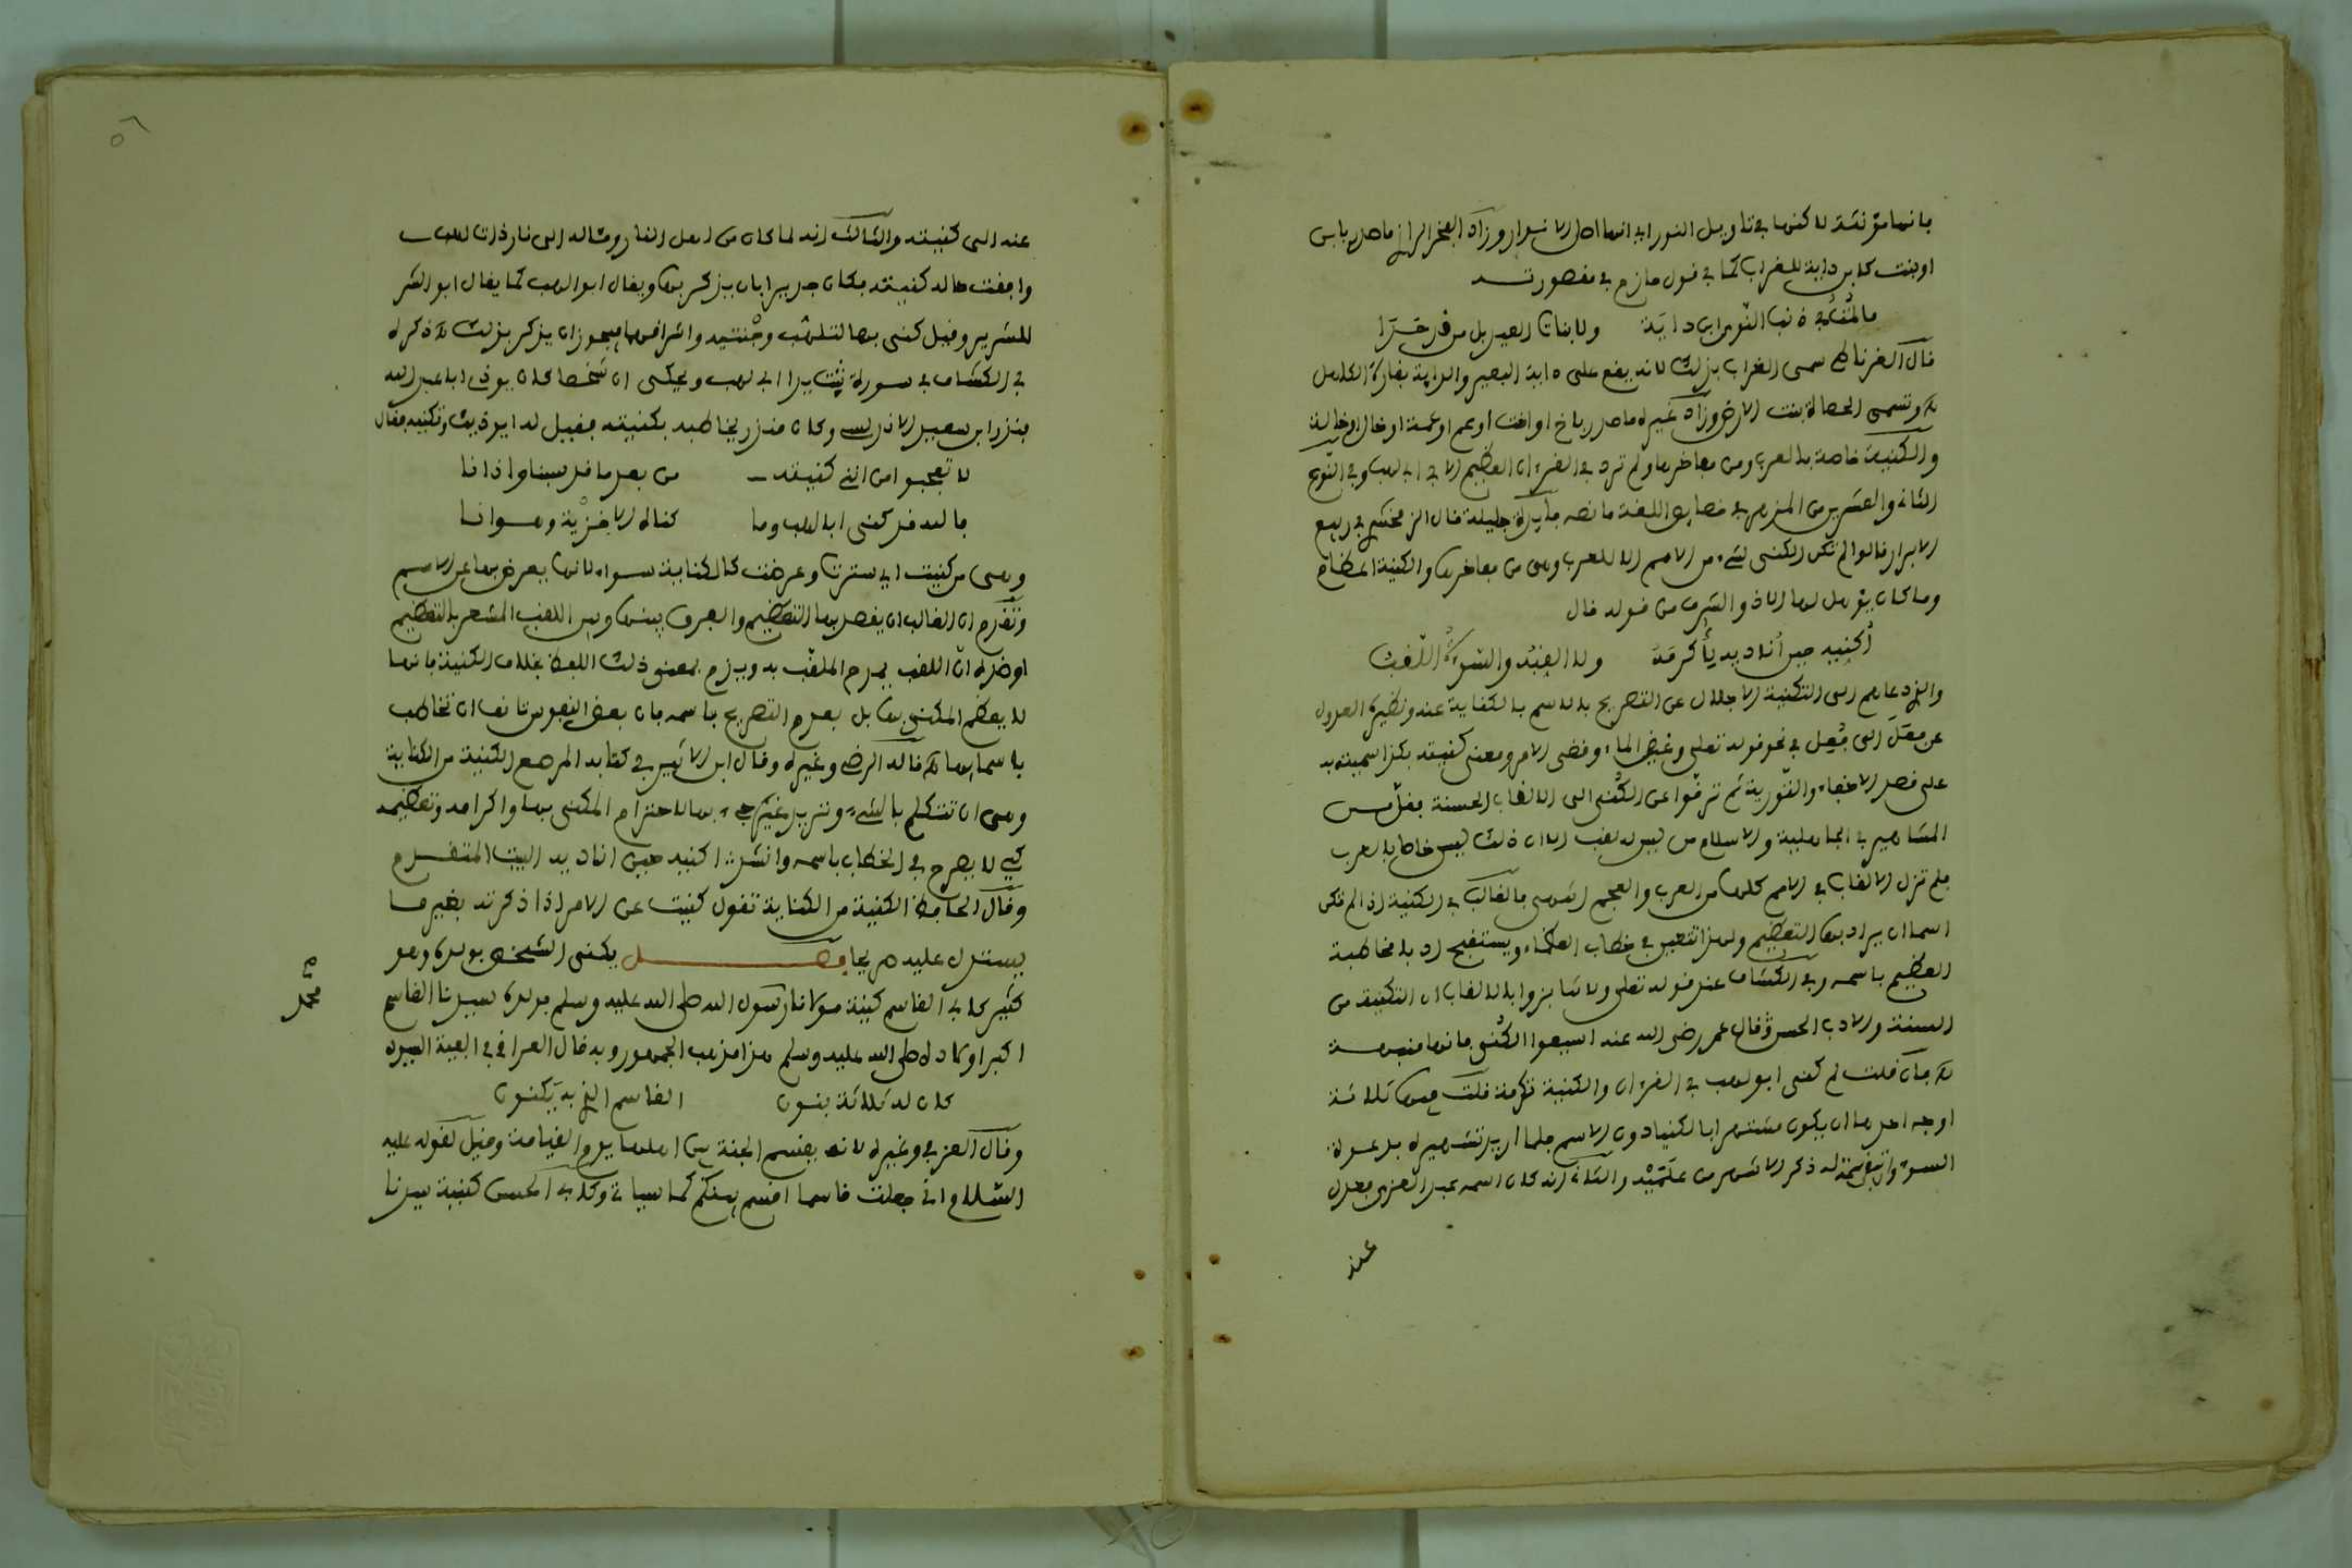 بانها مؤنثة لاكنها في تاويل النور اي انها اصل الانوار وزاد الفخر الرازي ما صدر بابن
او بنت كابن داية للغراب كما في قول حازم في مقصورته
ذنب النوى ابن داية ولا بنات العيد بل من قد حدا
قال الغرناطي سمى الغراب بذلك لانه يقع على داية البعير والداية بقارة الكاهل
وتسمى الحصاة بنت الارض وزاد غيره ما صدر باخ او اخت او عم او عمة او خال او خالة
والكنية خاصة بالعرب ومن مفاخرها ولم ترد في القرءان العظيم الا في ابي لهب وفي النوع
الثاني والعشرين من المزهر في خصايص اللغة ما نصه فايدة جليلة قال الزمخشري في ربيع
الابرار قالوا لم تكن الكنى لشيء من الامم الا للعرب وهي من مفاخرها والكنية اعظام
وما كان يؤهل لها الا ذو الشرف من قوله قال
أكنيه حين أناديه لأكرمه ولا القبه والسوءة اللقب
والذي دعاهم الى التكنية الاجلال عن التصريح بالاسم بالكناية عنه ونظيره العدول
عن فعل الى فُعِل في نحو قوله تعلى وغيض الماء وقضي الامر ومعنى كنيته بكذا سميته به
على قصد الاخفاء والتورية ثم ترقوا عن الكنى الى الالقاب الحسنة فقل من
المشاهير في الجاهلية والاسلام من ليس له لقب الا ان ذلك ليس خاصا بالعرب
فلم تزل الالقاب في الامم كلها من العرب والعجم انتهى فالغالب في الكنية اذا لم تكن
اسما ان يراد بها التعظيم ولهذا تتعين في خطاب العظماء ويستقبح اد بالمخاطبة
العظيم باسمه وفي الكشاف عند قوله تعلى ولا تنابزوا بالالقاب ان التكنية من
السنة والادب الحسن وقال عمر رضي الله عنه اشيعوا الكنى فانها منبهة
فان قلت لم كنى ابو لهب في القرءان والكنية تكرمة قلت فيها ثلاثة
اوجه احدها ان يكون مشتهرا بالكنية دون الاسم فلما اريد تشهيره بدعوة
السوء وان تبقى سمة له ذكر الاشهر من علميه والثاني انه كان اسمه عبد العزى فعدل
عنه
٥٦
عنه الى كنيته والثالث انه لما كان من اهل النار ومثاله الى نار ذات لهب
وافقت حاله كنيته فكان جديرا بان يذكر بها ويقال ابو لهب كما يقال ابو الشر
للشرير وقيل كنى بها لتلهب وجنتيه واشراقهما فيجوز ان يذكر بذلك ذكره
في الكشاف في سورة تبت يدا ابي لهب ويحكى ان شخصا كان يوذي ابا عبد الله
منذر ابن سعيد الاندلسي وكان منذر يخاطبه بكنيته فقيل له ايوذيك وتكنيه فقال
لا تعجبوا من انني كنيته من بعد ما قد سبنا واذانا
فالله قد كنى ابا لهب وما كناه الا خزية وهوانا
وهي من كنيت اي سترت وعرضت كالكناية سواء لانها يعرض بها عن الاسم
وتقدم ان الغالب ان يقصد بها التعظيم والفرق بينها وبين اللقب المشعر بالتعظيم
او ضده ان اللقب يمدح الملقب به ويذم بمعنى ذلك اللفظ بخلاف الكنية فانها
لا يعظم المكنى بها بل بعدم التصريح باسمه فان بعض النفوس تانف ان تخاطب
باسمائها قاله الرضي وغيره وقال ابن الاثير في كتابه المرصع الكنية من الكناية
وهي ان تتكلم بالشيء وتريد غيره جيء بها لاحترام المكنى بها واكرامه وتعظيمه
كي لا يصرح في الخطاب باسمه وانشد اكنيه حين اناديه البيت المتقدم
وقال الحافظ الكنية من الكناية تقول كنيت عن الامر اذا ذكرته بغير ما
يستدل عليه صريحا فصل يكنى الشخص بولده وهو
كثير كابي القاسم كنية مولانا رسول الله صلى الله عليه وسلم بولده سيدنا القاسم
اكبر اولاده صلى الله عليه وسلم هذا مذهب الجمهور وبه قال العراقي في الفية السير
كان له ثلاثة بنون القاسم الذي به يكنون
وقال العزفي وغيره لانه يقسم الجنة بين اهلها يوم القيامة وقيل لقوله عليه
السلام اني جعلت قاسما اقسم بينكم كما سياتي وكابي الحسن كنية سيدنا
محمد